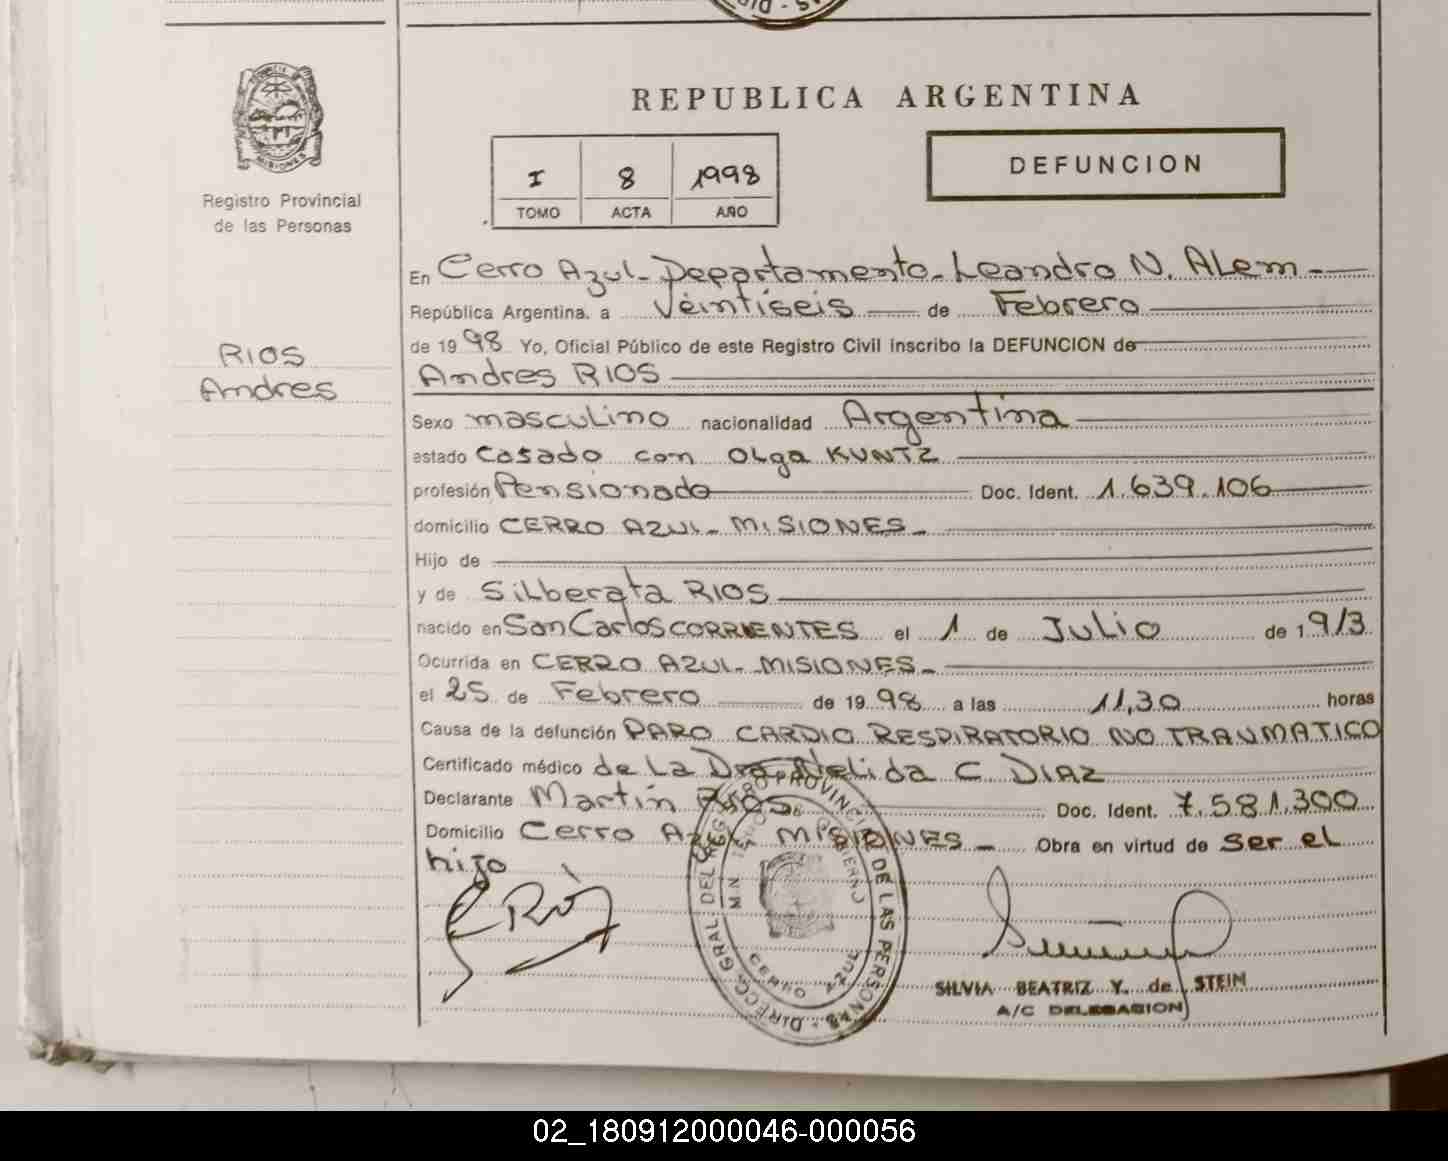 REPUBLICA ARGENTINA
I 8 1998
TOMO ACTA AÑO
DEFUNCION
MISIONES
Registro Provincial
de las Personas
RIOS
Andres
En Cerro Azul - Departamento - Leandro N. Alem -
República Argentina, a Veintiseis de Febrero
de 1998 Yo, Oficial Público de este Registro Civil inscribo la DEFUNCION de
Andres RIOS
Sexo masculino nacionalidad Argentina
estado Casado con Olga KUNTZ
profesión Pensionado Doc. Ident. 1.639.106
domicilio CERRO AZUL - MISIONES -
Hijo de
y de Silberata RIOS
nacido en San Carlos CORRIENTES el 1 de Julio de 1913
Ocurrida en CERRO AZUL - MISIONES -
el 25 de Febrero de 1998 a las 11,30 horas
Causa de la defunción PARO CARDIO RESPIRATORIO NO TRAUMATICO
Certificado médico de la Dra Nelida C. DIAZ
Declarante Martín Rios. Doc. Ident. 7.581.300
Domicilio Cerro Azul MISIONES - Obra en virtud de ser el
hijo
DIRECC. GRAL. DEL REGISTRO PROVINCIAL DE LAS PERSONAS
CERRO AZUL
SILVIA BEATRIZ Y. de STEIN
A/C DELEGACION
02_180912000046-000056